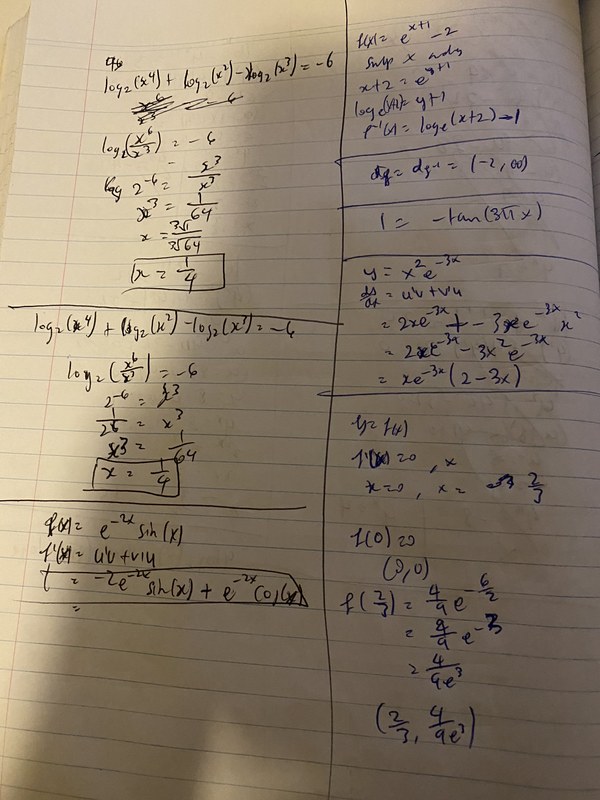 log₂(x⁴) + log₂(x²) - log₂(x³) = -6
log₂(x⁶/x³) = -6
2⁻⁶ = x³
x³ = 1/64
x = ³√1/³√64
x = 1/4
log₂(x⁴) + log₂(x²) - log₂(x³) = -6
log₂(x⁶/x³) = -6
2⁻⁶ = x³
1/2⁶ = x³
x³ = 1/64
x = 1/4
f(x) = e^(-2x) sin(x)
f'(x) = u'v + v'u
= -2e^(-2x) sin(x) + e^(-2x) cos(x)
=
f(x) = e^(x+1) - 2
swap x and y
x+2 = e^(y+1)
logₑ(x+2) = y+1
f⁻¹(x) = logₑ(x+2) - 1
= (-2, ∞)
1 = -tan(3πx)
y = x²e^(-3x)
dy/dx = u'v + v'u
= 2xe^(-3x) + -3e^(-3x) x²
= 2xe^(-3x) - 3x²e^(-3x)
= xe^(-3x)(2-3x)
y = f(x)
f'(x) = 0, x
x = 0, x = 2/3
f(0) = 0
(0,0)
f(2/3) = 4/9 e^(-6/2)
= 4/9 e^(-3)
= 4/9e³
(2/3, 4/9e³)